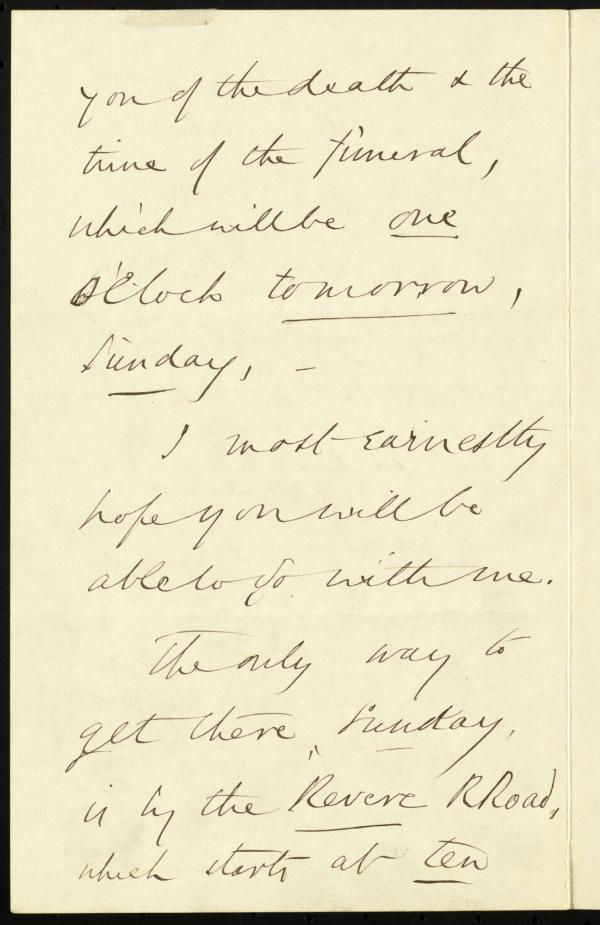 you of the death & the
time of the funeral,
which will be one
O'Clock tomorrow,
Sunday, –
I most earnestly
hope you will be
able to go with me.
The only way to
get there, Sunday,
is by the Revere RRoad,
which starts at ten